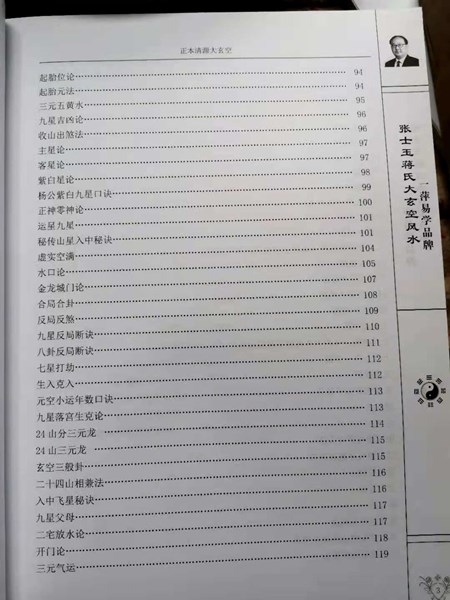 正本清源大玄空
起胎位论 94
起胎元法 94
三元五黄水 95
九星吉凶论 96
收山出煞法 96
主星论 97
客星论 97
紫白星论 98
杨公紫白九星口诀 99
正神零神论 100
运星九星 101
秘传山星入中秘诀 101
虚实空满 104
水口论 105
金龙城门论 107
合局合卦 108
反局反煞 109
九星反局断诀 110
八卦反局断诀 111
七星打劫 112
生入克入 112
元空小运年数口诀 113
九星落宫生克论 113
24山分三元龙 114
24山三元龙 115
玄空三般卦 115
二十四山相兼法 116
入中飞星秘诀 116
九星父母 117
二宅放水论 117
开门论 118
三元气运 119
一萍易学品牌
张士玉蒋氏大玄空风水
3